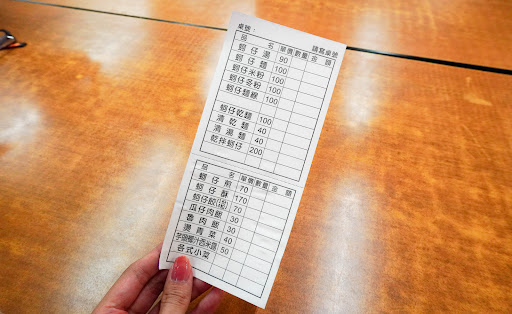 桌號： 請寫桌號
品名 單價 數量 金額
蚵仔湯 90
蚵仔麵 100
蚵仔米粉 100
蚵仔冬粉 100
蚵仔麵線 100
蚵仔乾麵 100
清乾麵 40
清湯麵 40
乾拌蚵仔 200
品名 單價 數量 金額
蚵仔煎 70
蚵仔酥 170
蚵仔飯 70
瓜仔肉飯 30
魯肉飯 30
燙青菜 40
芋頭椰汁西米露 50
各式小菜